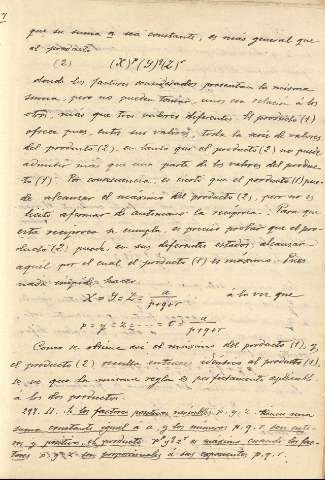 que su suma a sea constante, es más general que
el producto
(2) (X)^p (Y)^q (Z)^r
donde los factores considerados presentan la misma
suma, pero no pueden tomar, unos con relación á los
otros, más que tres valores diferentes. El producto (1)
ofrece pues, entre sus valores, toda la serie de valores
del producto (2), en tanto que el producto (2) no puede
admitir más que una parte de los valores del produc-
to (1). Por consecuencia, es cierto que el producto (1) pue-
de alcanzar el máximo del producto (2), pero no es
lícito afirmar de antemano la recíproca. Para que
esta recíproca se cumpla, es preciso probar que el pro-
ducto (2) puede, en sus diferentes estados, alcanzar
aquél por el cual el producto (1) es máximo. Pues
nada impide hacer
X = Y = Z = a/(p+q+r) á la vez que
p = y = z = ... = t = a/(p+q+r)
Como se obtiene así el máximo del producto (1), y
el producto (2) resulta entonces idéntico al producto (1),
se ve que la misma regla es perfectamente aplicable
á los dos productos.
II. Si los factores positivos variables, tienen una
suma constante igual á a, y los números p, q, r son ente-
ros y positivos, el producto es máximo cuando los fac-
tores son proporcionales á sus exponentes p, q, r.